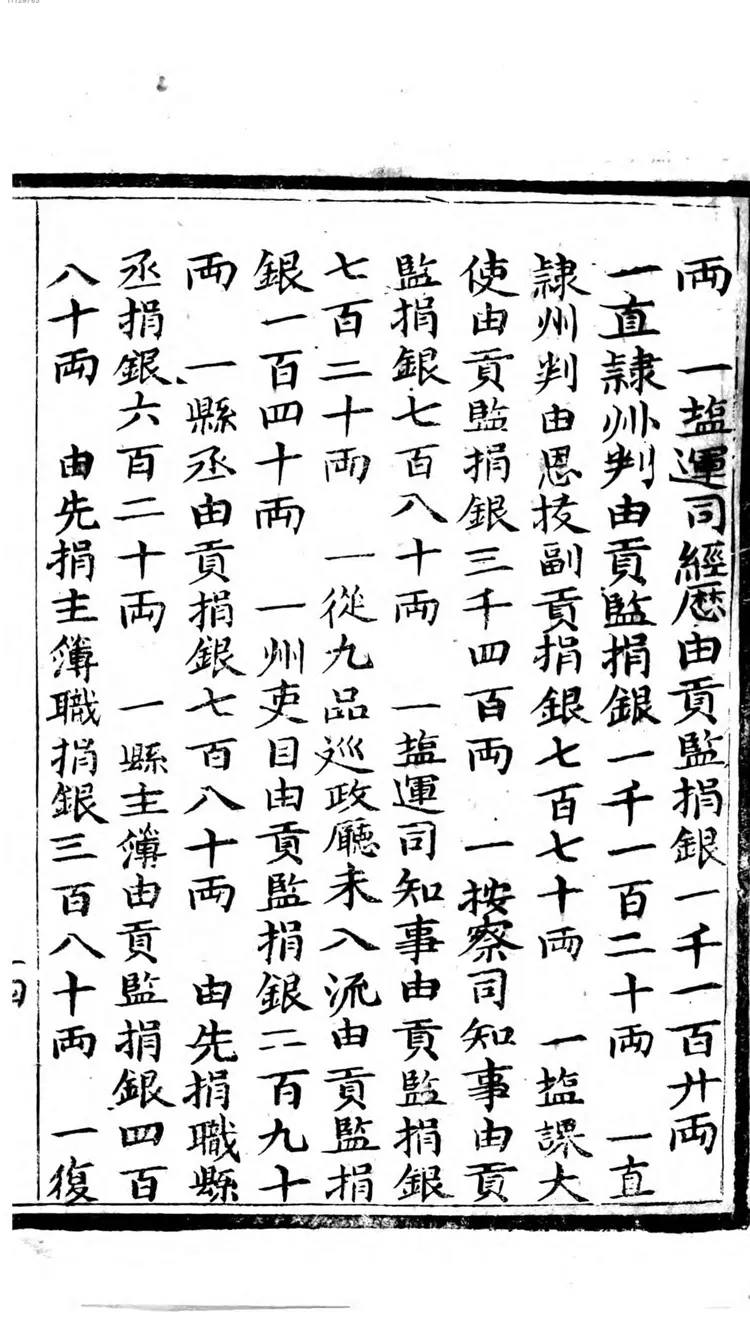 两　一塩運司經厯由貢監捐銀一千一百廾两
一直隷州判由貢監捐銀一千一百二十两　一直
隷州判由恩拔副貢捐銀七百七十两　一塩課大
使由貢監捐銀三千四百两　一按察司知事由貢
監捐銀七百八十两　一塩運司知事由貢監捐銀
七百二十两　一從九品巡政廳未入流由貢監捐
銀一百四十两　一州吏目由貢監捐銀二百九十
两　一縣丞由貢捐銀七百八十两　由先捐職縣
丞捐銀六百二十两　一縣主簿由貢監捐銀四百
八十两　由先捐主簿職捐銀三百八十两　一復
四